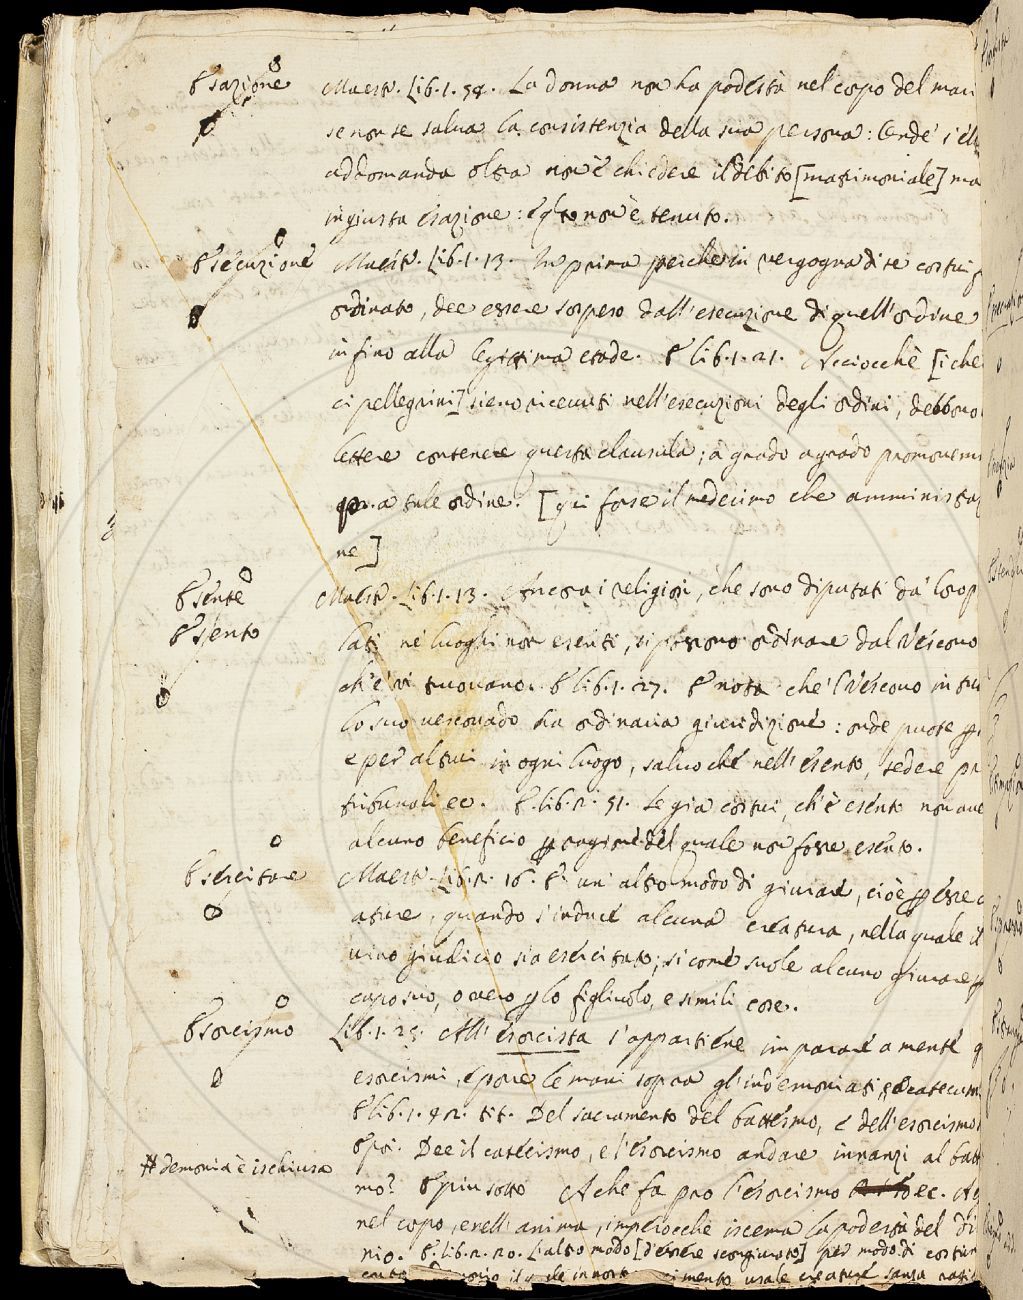 Esazione
Maestr. Lib. 1. 58. La donna non ha podestà nel corpo del mari
se non se salva la consistenzia della sua persona: Onde s'el
addomanda oltra non è chiedere il debito [matrimoniale] ma
ingiusta esazione: non è tenuto.
Esecuzione
Maestr. Lib. 1. 13. prima perche in vergogna di te costui
ordinato, dee essere sospeso dall'esecuzione di quell'ordine
infino alla legittima etade. E lib. 1. 21. Acciocchè [i che
ci pellegrini] sieno ricevuti nell'esecuzioni degli ordini, debbono
lettere contenere questa clausula; a grado a grado
tale ordine. [qui forse il medecimo che amministraz
ne]
Esente
Esento
Maestr. Lib. 1. 13. Ancora i religiosi, che sono diputati da' loro p
lati ne' luoghi non esenti, si possono ordinare dal Vescovo
ch'è ivi truovano. E lib. 1. 27. E nota che'l Vescovo in tut
lo suo vescovado ha ordinaria giuridizione: onde puote
e per altrui in ogni luogo, salvo che nell'esento, sedere pr
tribunali ec. E lib. 2. 51. Se già costui, ch'è esento non ave
alcuno beneficio ragione del quale non fosse esento.
Esercitare
Maestr. Lib. 2. 16. E un altro modo di giurare, cioè
ature, quando s'induce alcuna creatura, nella quale il
vino giudicio sia esercitato; sì come suole alcuno giurare
capo suo, o vero lo figliuolo, e simili cose.
Esorcismo
Lib. 1. 25. All'esorcista s'appartiene imparare a mente g
esorcismi, e porre le mani sopra gl'indemoniati, catecum
E lib. 1. 42. tit. Del sacramento del battesmo, e dell'esorcismo
Dee il catecismo, e l'esorcismo andare innanzi al batt
mo? E più sotto A che fa pro l'esorcismo ec.
# demonia è ischiusa
nel corpo, e nell'anima, imperocchè iscema la podestà del di
nio. E lib. 2. 20. L'altro modo [d'essere scongiurato] per modo di